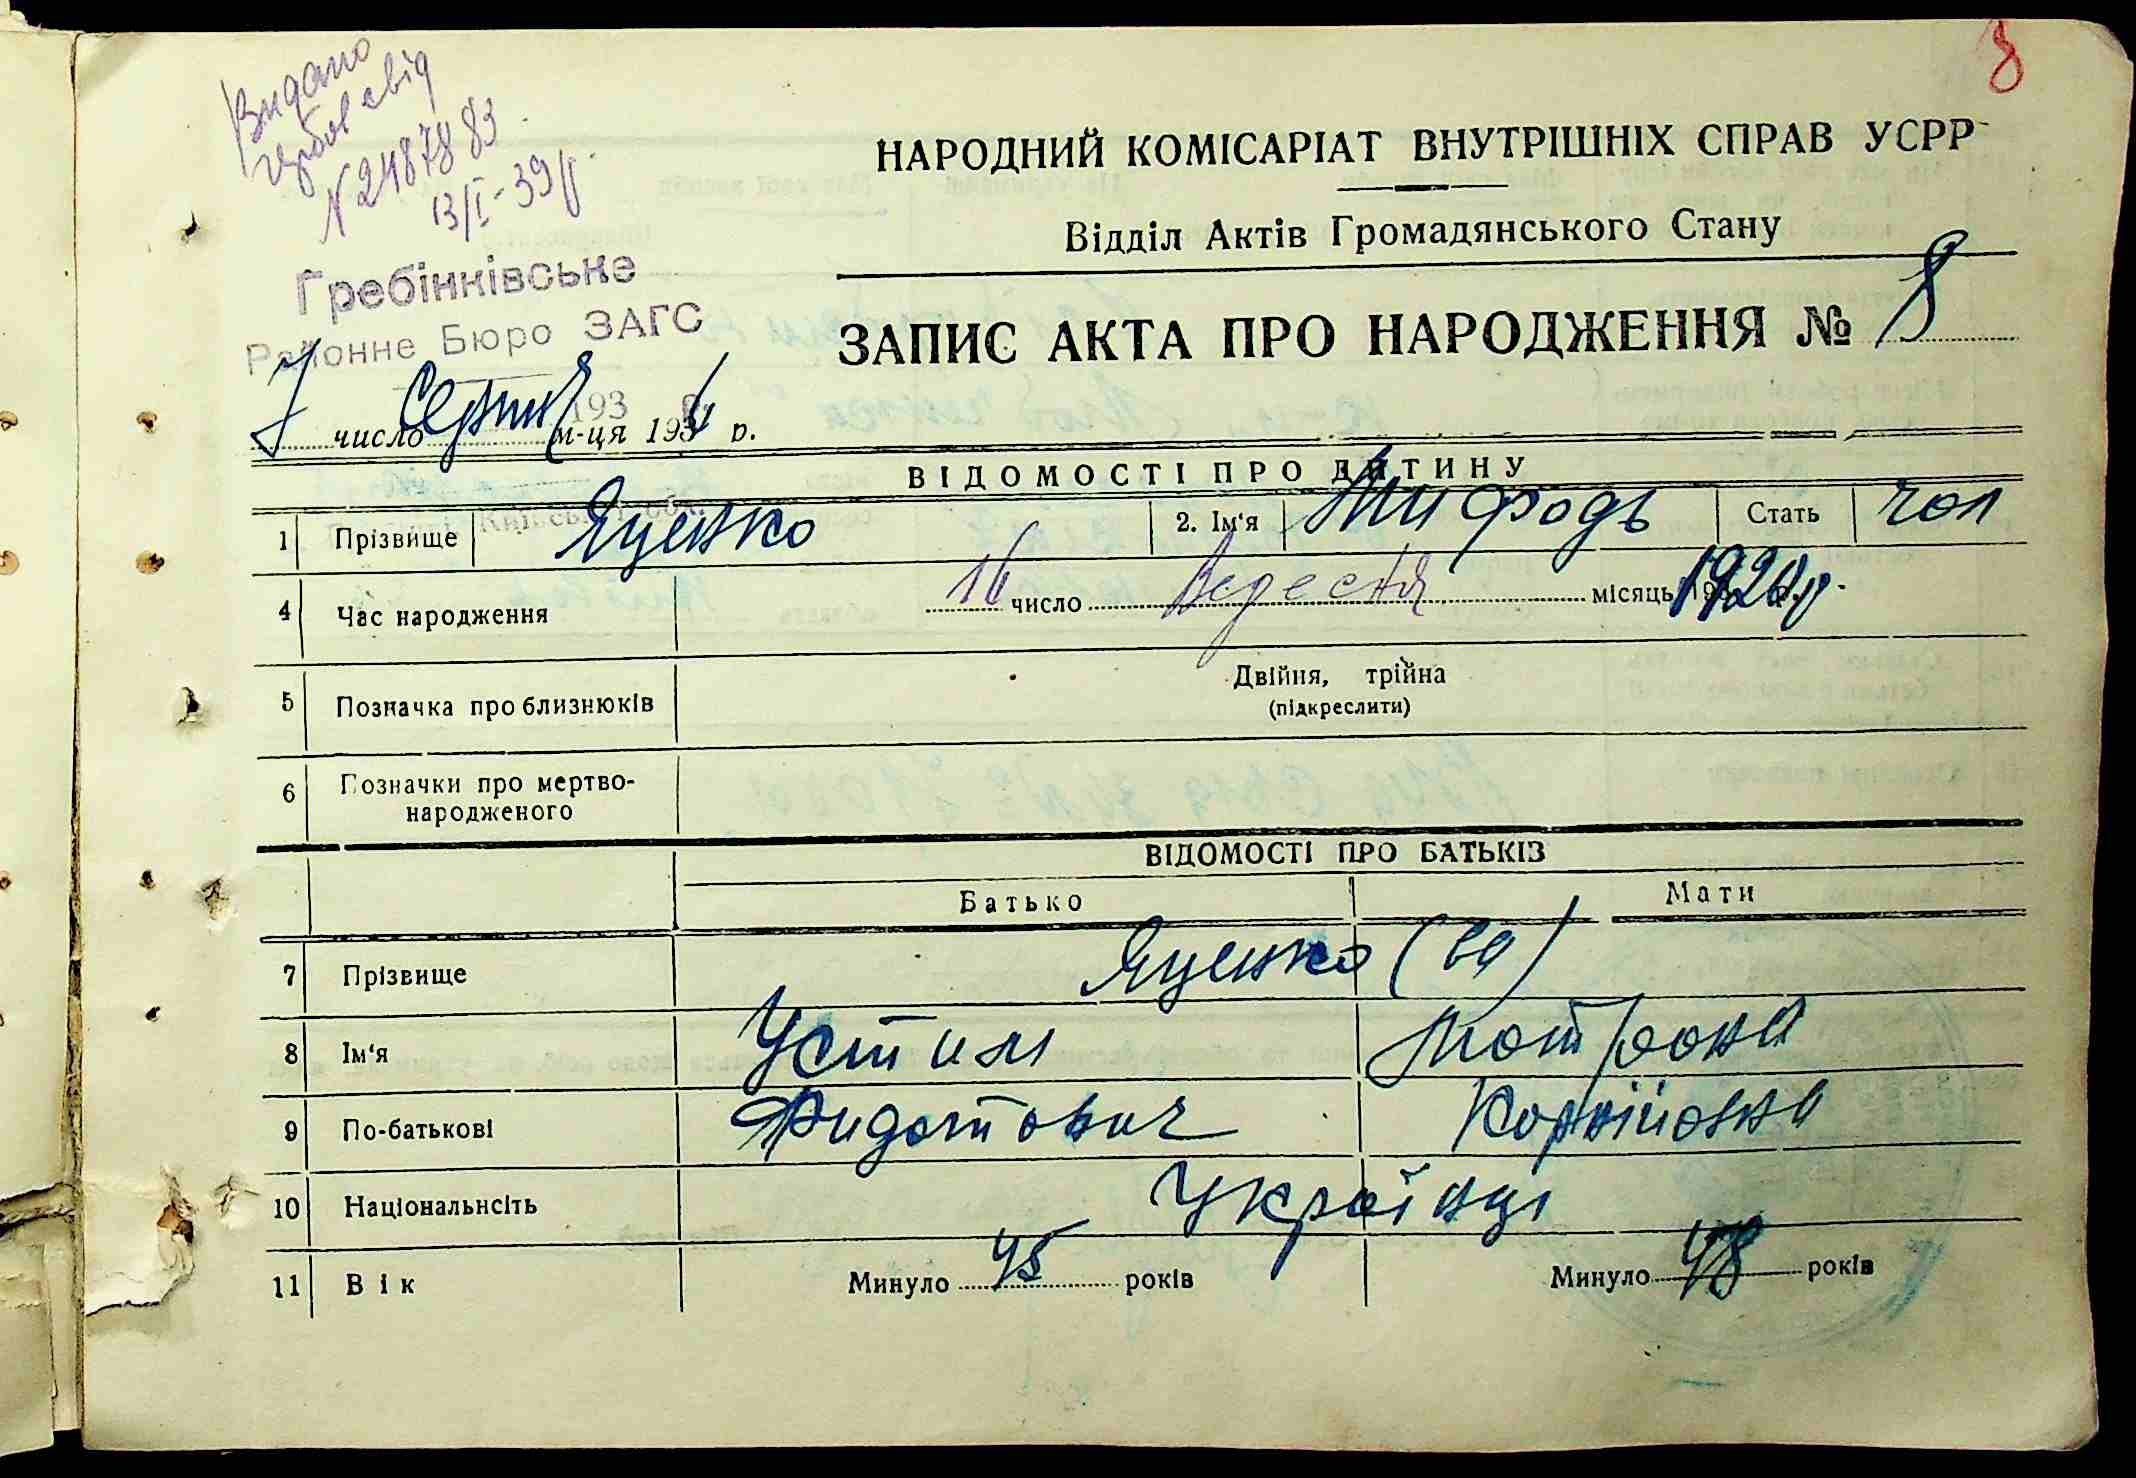 8
Видано
гербов свід
N 2487883
13/I-39 р
НАРОДНИЙ КОМІСАРІАТ ВНУТРІШНІХ СПРАВ УСРР
Відділ Актів Громадянського Стану
Гребінківське
Районне Бюро ЗАГС
ЗАПИС АКТА ПРО НАРОДЖЕННЯ № 8
7 число Серпня м-ця 193 р.
ВІДОМОСТІ ПРО ДИТИНУ
1 Прізвище Яценко 2. Ім'я Мифодь Стать чол
4 Час народження 16 число Вересня місяць 1920 р.
5 Позначка про близнюків Двійня, трійна
(підкреслити)
6 Позначки про мертво-
народженого
ВІДОМОСТІ ПРО БАТЬКІВ
Батько Мати
7 Прізвище Яценко (ва)
8 Ім'я Устим Мотрона
9 По-батькові Фидотович Корнійовна
10 Національнсіть Українці
11 Вік Минуло 45 років Минуло 48 років